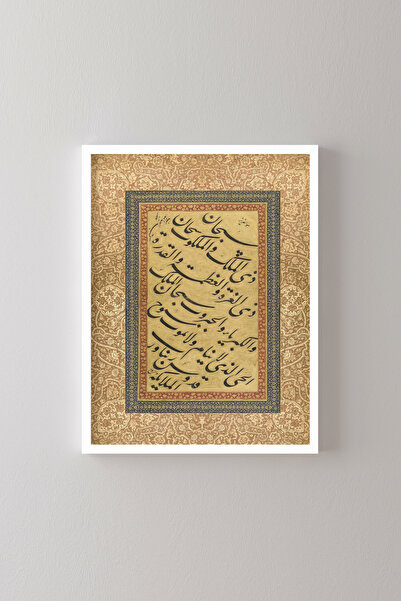 سبحان
ذی الملک والملکوت سبحان
ذی العزة والعظمة والقدرة
والکبریاء والجبروت سبحان الملک
الحی الذی لا ینام ولا یموت سبوح
قدوس ربنا ورب الملائکة